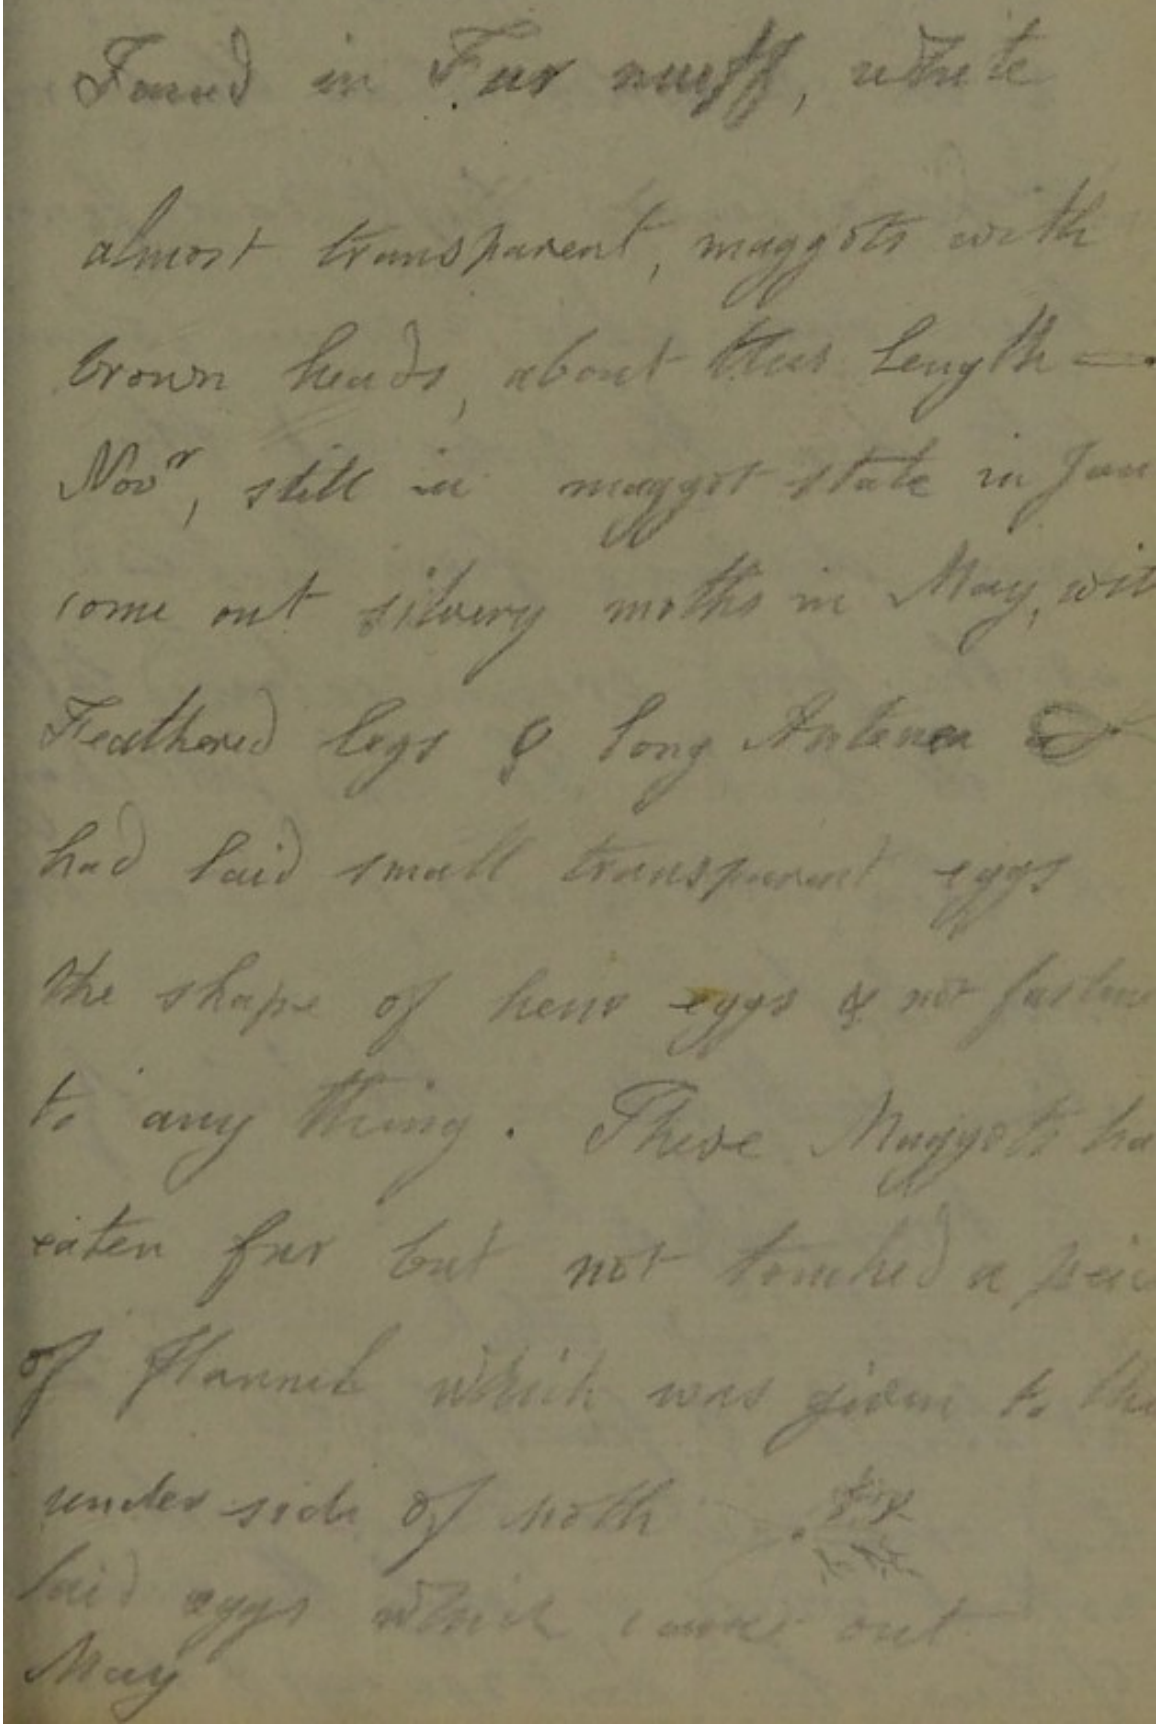 Found in Fur muff, white
almost transparent, maggots with
brown heads, about this length
Novr, still in maggot state in Jan
come out silvery moths in May, wit
Feathered legs & long Antenea
had laid small transparent eggs
the shape of hens eggs & not fastene
to any thing. These Maggots ha
eaten fur but not touched a peic
of flannel which was given to the
under side of moth
laid eggs which came out
May